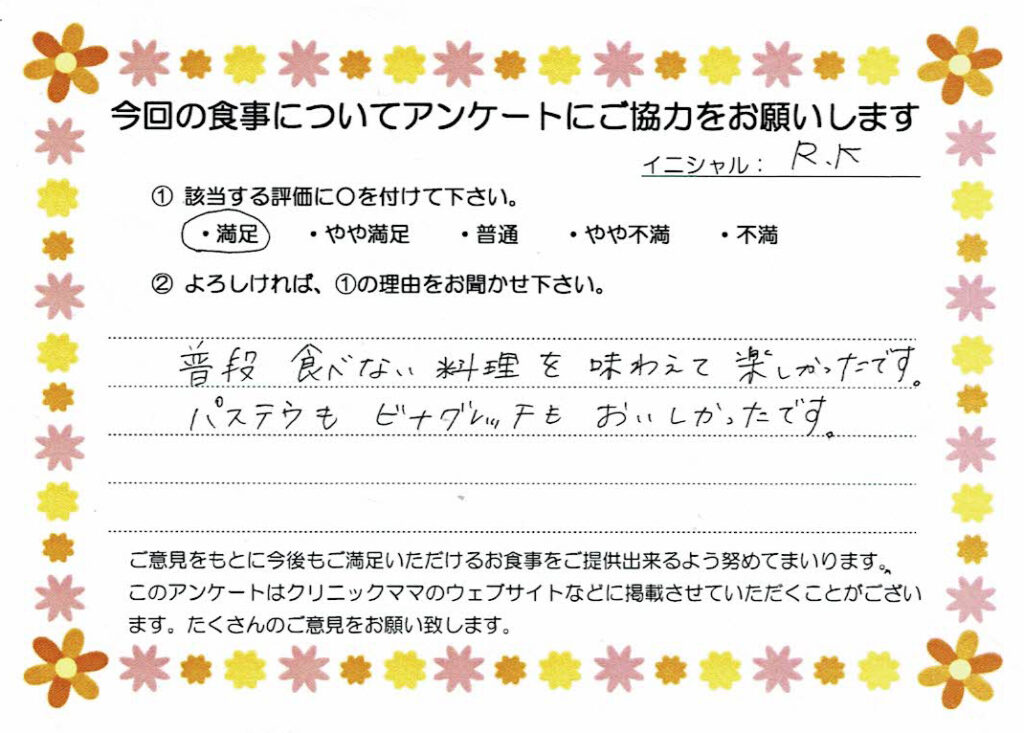 今回の食事についてアンケートにご協力をお願いします
イニシャル： R.K
① 該当する評価に〇を付けて下さい。
・満足 ・やや満足 ・普通 ・やや不満 ・不満
② よろしければ、①の理由をお聞かせ下さい。
普段 食べない 料理を 味わえて 楽しかったです。
パステウも ビナグレッチも おいしかったです。
ご意見をもとに今後もご満足いただけるお食事をご提供出来るよう努めてまいります。
このアンケートはクリニックママのウェブサイトなどに掲載させていただくことがござい
ます。たくさんのご意見をお願い致します。